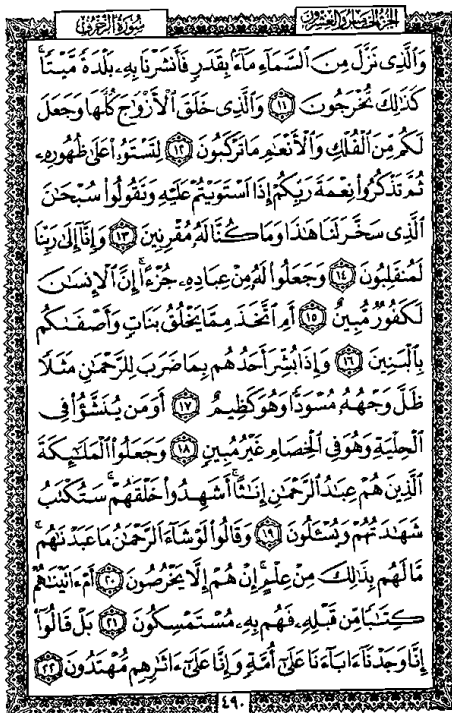 الجزء الخامس والعشرون
سورة الزخرف
وَالَّذِى نَزَّلَ مِنَ السَّمَآءِ مَآءَۢ بِقَدَرٍ فَأَنشَرْنَا بِهِۦ بَلْدَةً مَّيْتًاۚ
كَذَٰلِكَ تُخْرَجُونَ ١١ وَالَّذِى خَلَقَ الْأَزْوَٰجَ كُلَّهَا وَجَعَلَ
لَكُم مِّنَ الْفُلْكِ وَالْأَنْعَٰمِ مَا تَرْكَبُونَ ١٢ لِتَسْتَوُۥا۟ عَلَىٰ ظُهُورِهِۦ
ثُمَّ تَذْكُرُوا۟ نِعْمَةَ رَبِّكُمْ إِذَا اسْتَوَيْتُمْ عَلَيْهِ وَتَقُولُوا۟ سُبْحَٰنَ
الَّذِى سَخَّرَ لَنَا هَٰذَا وَمَا كُنَّا لَهُۥ مُقْرِنِينَ ١٣ وَإِنَّآ إِلَىٰ رَبِّنَا
لَمُنقَلِبُونَ ١٤ وَجَعَلُوا۟ لَهُۥ مِنْ عِبَادِهِۦ جُزْءًاۚ إِنَّ الْإِنسَٰنَ
لَكَفُورٌ مُّبِينٌ ١٥ أَمِ اتَّخَذَ مِمَّا يَخْلُقُ بَنَاتٍ وَأَصْفَىٰكُم
بِالْبَنِينَ ١٦ وَإِذَا بُشِّرَ أَحَدُهُم بِمَا ضَرَبَ لِلرَّحْمَٰنِ مَثَلًا
ظَلَّ وَجْهُهُۥ مُسْوَدًّا وَهُوَ كَظِيمٌ ١٧ أَوَمَن يُنَشَّؤُا۟ فِى
الْحِلْيَةِ وَهُوَ فِى الْخِصَامِ غَيْرُ مُبِينٍ ١٨ وَجَعَلُوا۟ الْمَلَٰٓئِكَةَ
الَّذِينَ هُمْ عِبَٰدُ الرَّحْمَٰنِ إِنَٰثًاۚ أَشَهِدُوا۟ خَلْقَهُمْۚ سَتُكْتَبُ
شَهَٰدَتُهُمْ وَيُسْـَٔلُونَ ١٩ وَقَالُوا۟ لَوْ شَآءَ الرَّحْمَٰنُ مَا عَبَدْنَٰهُمۗ
مَّا لَهُم بِذَٰلِكَ مِنْ عِلْمٍۖ إِنْ هُمْ إِلَّا يَخْرُصُونَ ٢٠ أَمْ ءَاتَيْنَٰهُمْ
كِتَٰبًا مِّن قَبْلِهِۦ فَهُم بِهِۦ مُسْتَمْسِكُونَ ٢١ بَلْ قَالُوٓا۟
إِنَّا وَجَدْنَآ ءَابَآءَنَا عَلَىٰٓ أُمَّةٍ وَإِنَّا عَلَىٰٓ ءَاثَٰرِهِم مُّهْتَدُونَ ٢٢
٤٩٠